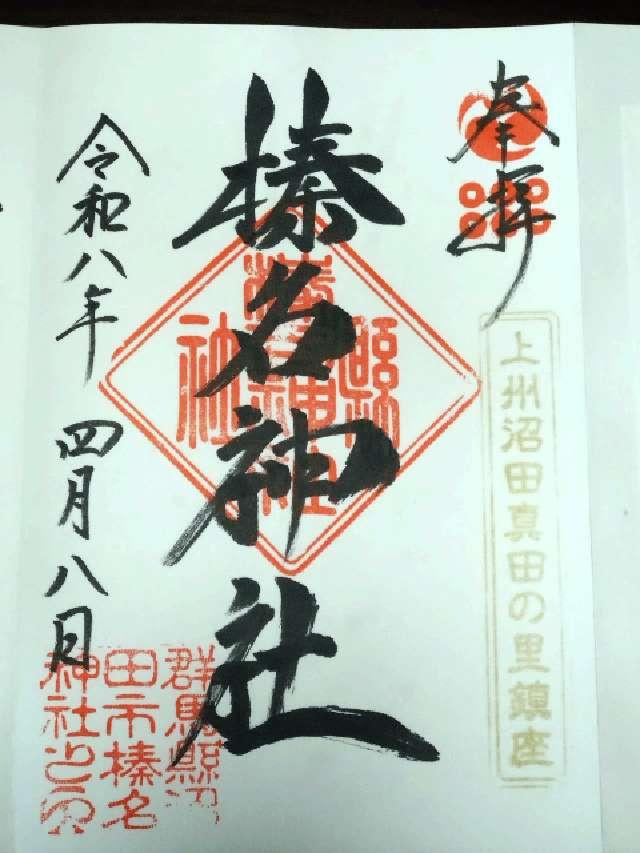 奉拝
上州沼田真田の里鎮座
榛名神社
縣社
榛名神社
令和八年 四月八日
群馬縣沼
田市榛名
神社之印